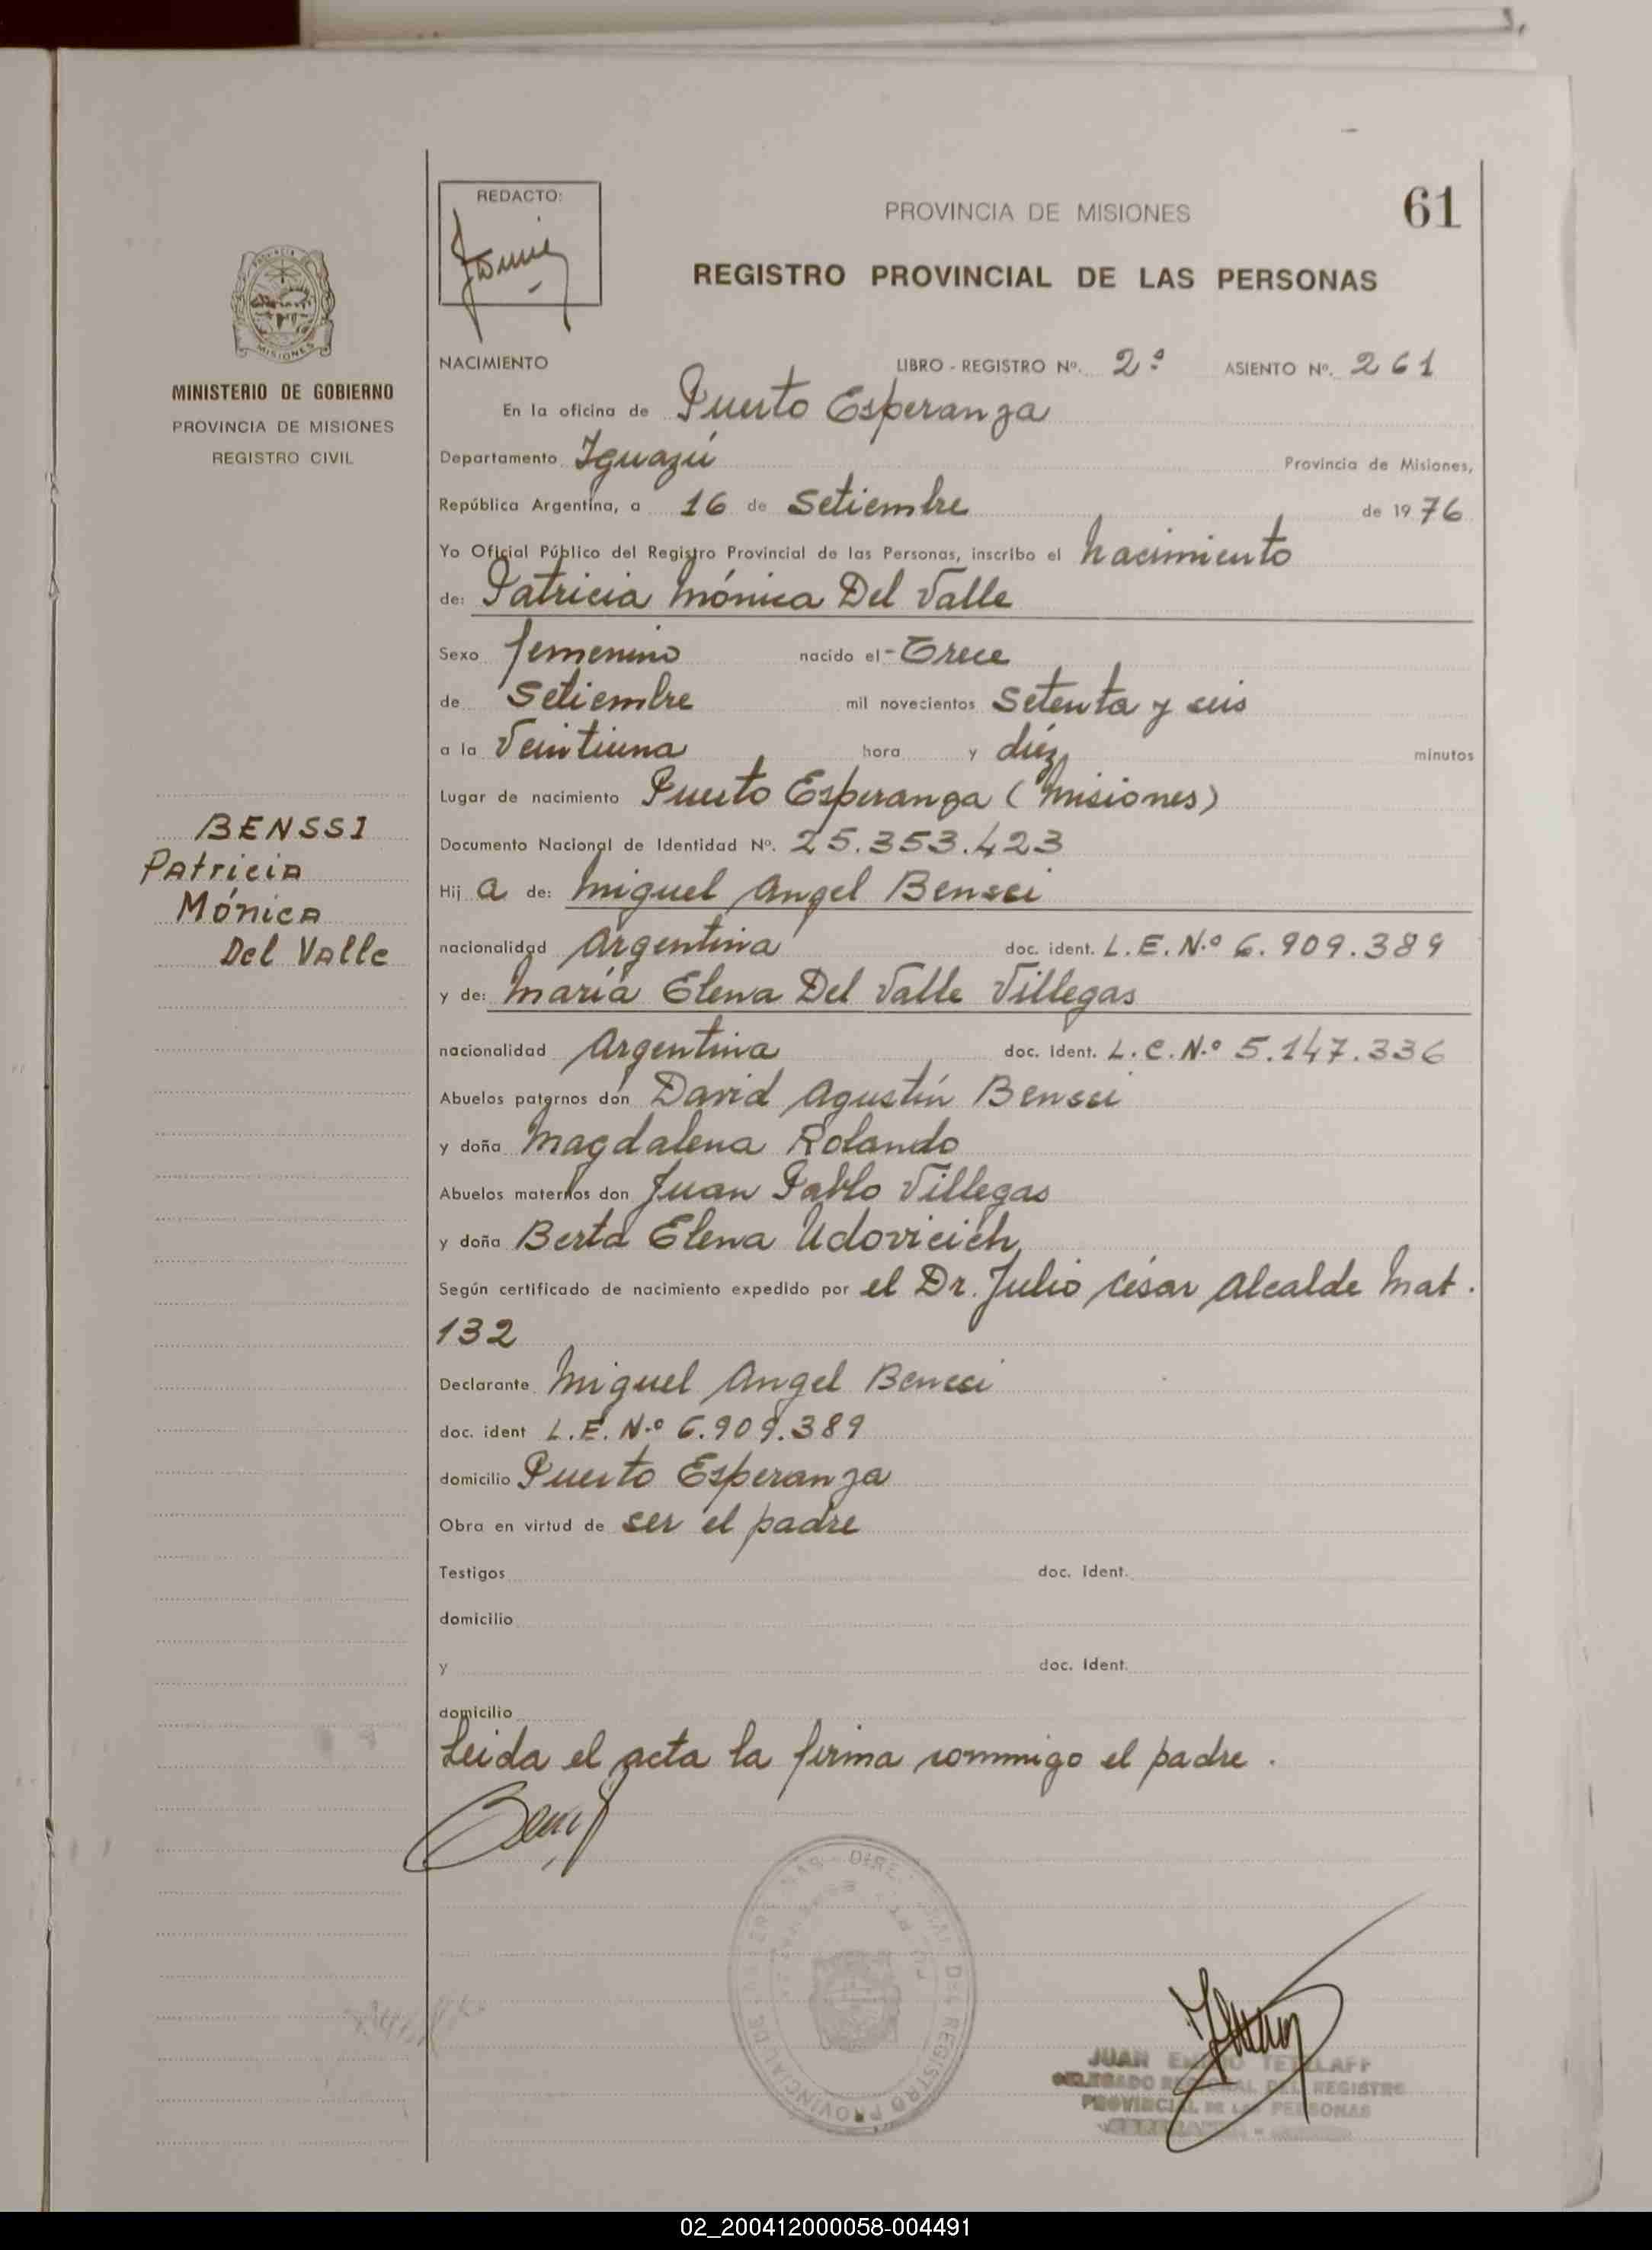 61
REDACTO:
PROVINCIA DE MISIONES
REGISTRO PROVINCIAL DE LAS PERSONAS
MISIONES
MINISTERIO DE GOBIERNO
PROVINCIA DE MISIONES
REGISTRO CIVIL
NACIMIENTO LIBRO - REGISTRO Nº. 2º ASIENTO Nº. 261
En la oficina de Puerto Esperanza
Departamento Iguazú Provincia de Misiones,
República Argentina, a 16 de Setiembre de 1976
Yo Oficial Público del Registro Provincial de las Personas, inscribo el nacimiento
de: Patricia Mónica Del Valle
Sexo femenino nacido el Trece
de Setiembre mil novecientos setenta y seis
a la Veintiuna hora y diéz minutos
Lugar de nacimiento Puerto Esperanza (Misiones)
Documento Nacional de Identidad Nº. 25.353.423
Hij a de: Miguel Angel Benssi
nacionalidad Argentina doc. ident. L.E.N.º 6.909.389
y de: María Elena Del Valle Villegas
nacionalidad Argentina doc. Ident. L.C.N.º 5.147.336
Abuelos paternos don David Agustín Benssi
y doña Magdalena Rolando
Abuelos maternos don Juan Pablo Villegas
y doña Berta Elena Udovicich
Según certificado de nacimiento expedido por el Dr. Julio César Alcalde Mat.
132
Declarante Miguel Angel Benssi
doc. ident L.E.N.º 6.909.389
domicilio Puerto Esperanza
Obra en virtud de ser el padre
Testigos doc. Ident.
domicilio
y doc. Ident.
domicilio
Leida el acta la firma conmigo el padre.
BENSSI
Patricia
Mónica
Del Valle
JUAN TETZLAFF
DELEGADO REGIONAL DEL REGISTRO
PROVINCIAL DE LAS PERSONAS
02_200412000058-004491